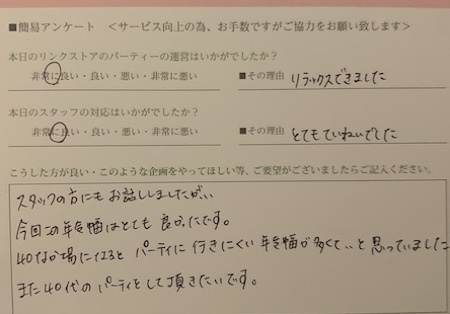 ■簡易アンケート <サービス向上の為、お手数ですがご協力をお願い致します>
本日のリンクストアのパーティーの運営はいかがでしたか?
非常に良い・良い・悪い・非常に悪い ■その理由 リラックスできました
本日のスタッフの対応はいかがでしたか?
非常に良い・良い・悪い・非常に悪い ■その理由 とてもていねいでした
こうした方が良い・このような企画をやってほしい等、ご要望がございましたらご記入ください。
スタッフの方にもお話ししましたが、、
今回この年令幅はとても良かったです。
40なか場になると パーティに行きにくい年令幅が多くて、、と思っていました
また40代のパーティをして頂きたいです。